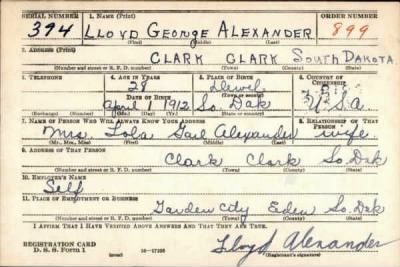 SERIAL NUMBER 1. NAME (Print) ORDER NUMBER
394 LLOYD GEORGE ALEXANDER 899
(First) (Middle) (Last)
2. ADDRESS (Print)
CLARK CLARK SOUTH DAKOTA
(Number and street or R. F. D. number) (Town) (County) (State)
3. TELEPHONE 4. AGE IN YEARS 5. PLACE OF BIRTH 6. COUNTRY OF CITIZENSHIP
28
DATE OF BIRTH (Town or county)
April 1 1912 So. Dak U.S.A.
(Exchange) (Number) (Mo.) (Day) (Yr.) (State or country)
7. NAME OF PERSON WHO WILL ALWAYS KNOW YOUR ADDRESS 8. RELATIONSHIP OF THAT PERSON
Mrs. Lola Gail Alexander wife
(Mr., Mrs., Miss) (First) (Middle) (Last)
9. ADDRESS OF THAT PERSON
Clark Clark So. Dak
(Number and street or R. F. D. number) (Town) (County) (State)
10. EMPLOYER'S NAME
Self
11. PLACE OF EMPLOYMENT OR BUSINESS
Garden City Eden So. Dak
(Number and street or R. F. D. number) (Town) (County) (State)
I AFFIRM THAT I HAVE VERIFIED ABOVE ANSWERS AND THAT THEY ARE TRUE.
REGISTRATION CARD
D. S. S. Form 1 16-17105 Lloyd Alexander
(Registrant's signature)